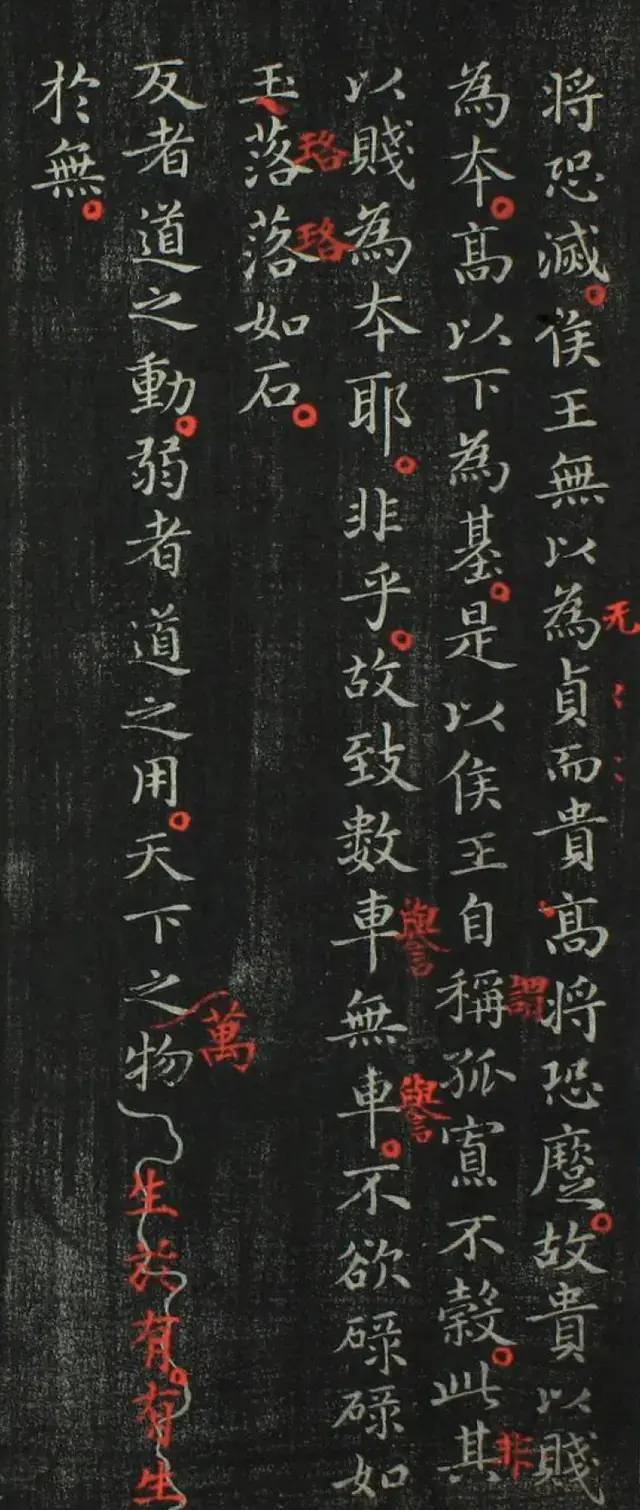 将恐滅。侯王無以為貞而貴高将恐蹷。故貴以賤
无
為本。高以下為基。是以侯王自稱孤寡不穀。此其
謂
非
以賤為本耶。非乎。故致數車無車。不欲碌碌如
譽
譽
玉落落如石。
珞
珞
反者道之動。弱者道之用。天下之物生於有。有生
萬
於無。